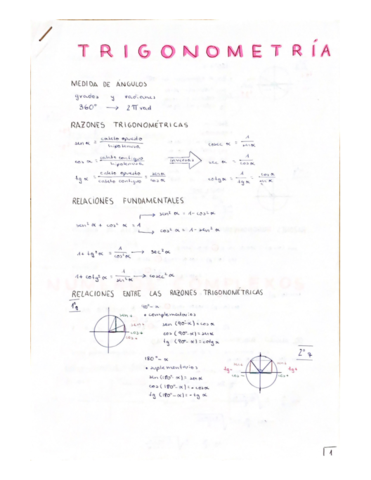 TRIGONOMETRÍA
MEDIDA DE ÁNGULOS
grados y radianes
360° → 2π rad
RAZONES TRIGONOMÉTRICAS
sen α = cateto opuesto / hipotenusa
cosec α = 1 / sen α
cos α = cateto contiguo / hipotenusa
sec α = 1 / cos α
tg α = cateto opuesto / cateto contiguo = sen α / cos α
cotg α = 1 / tg α = cos α / sen α
RELACIONES FUNDAMENTALES
sen² α + cos² α = 1
sen² α = 1 - cos² α
cos² α = 1 - sen² α
1 + tg² α = 1 / cos² α → sec² α
1 + cotg² α = 1 / sen² α → cosec² α
RELACIONES ENTRE LAS RAZONES TRIGONOMÉTRICAS
90° - α
• complementarios
sen (90° - α) = cos α
cos (90° - α) = sen α
tg (90° - α) = cotg α
180° - α
• suplementarios
sen (180° - α) = sen α
cos (180° - α) = - cos α
tg (180° - α) = - tg α
1